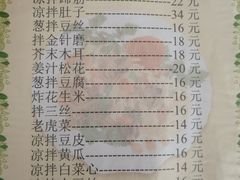 凉拌蹄筋 22 元
凉拌肚子 34 元
葱拌豆丝 16 元
拌金针磨 16 元
芥末木耳 18 元
姜汁松花 20 元
葱拌豆腐 16 元
炸花生米 16 元
拌三丝 16 元
老虎菜 14 元
凉拌豆皮 16 元
凉拌黄瓜 16 元
凉拌白菜心 14 元